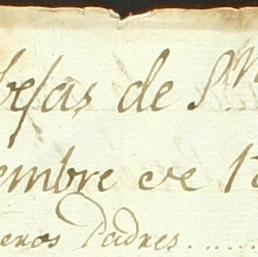 besas de Sn
embre de 1
enos Padres......